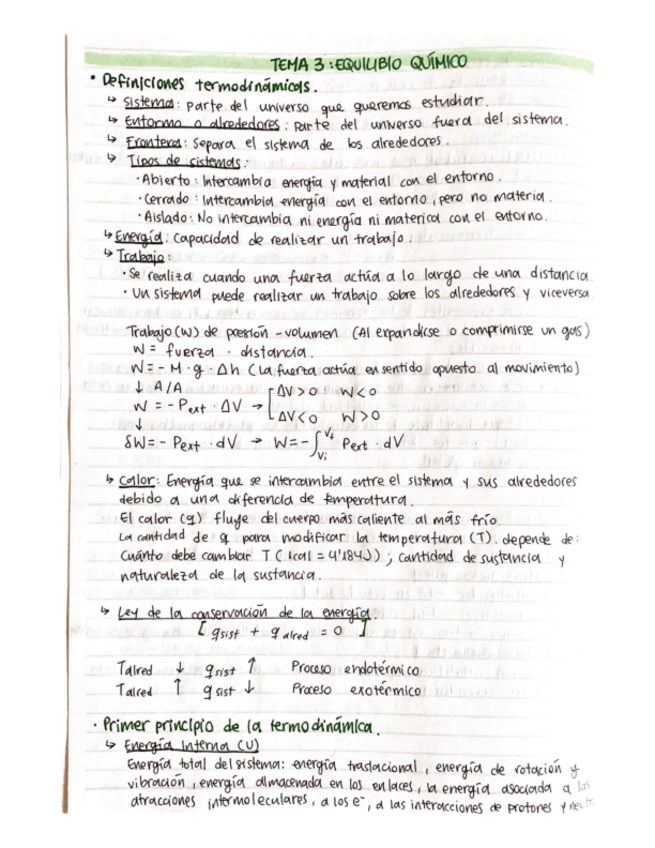 TEMA 3: EQUILIBIO QUÍMICO
• Definiciones termodinámicas.
↳ Sistema: parte del universo que queremos estudiar.
↳ Entorno o alrededores: parte del universo fuera del sistema.
↳ Frontera: Separa el sistema de los alrededores.
↳ Tipos de sistemas:
· Abierto: Intercambia energía y material con el entorno.
· Cerrado: Intercambia energía con el entorno, pero no materia.
· Aislado: No intercambia ni energía ni materica con el entorno.
↳ Energía: Capacidad de realizar un trabajo.
↳ Trabajo:
· Se realiza cuando una fuerza actúa a lo largo de una distancia
· Un sistema puede realizar un trabajo sobre los alrededores y viceversa
Trabajo (W) de presión - volumen (Al expandirse o comprimirse un gas)
W = fuerza · distancia.
W = - M · g · Δh (La fuerza actúa en sentido opuesto al movimiento)
↓ A/A
W = - Pext · ΔV → [ΔV > 0 W < 0
ΔV < 0 W > 0
↓
δW = - Pext · dV → W = - ∫Vi Vf Pext · dV
↳ Calor: Energía que se intercambia entre el sistema y sus alrededores
debido a una diferencia de temperatura.
El calor (q) fluye del cuerpo más caliente al más frío.
La cantidad de q para modificar la temperatura (T). depende de:
Cuánto debe cambiar T (1cal = 4'184J); cantidad de sustancia y
naturaleza de la sustancia.
↳ Ley de la conservación de la energía.
[ qsist + qalred = 0 ]
Talred ↓ qsist ↑ Proceso endotérmico
Talred ↑ qsist ↓ Proceso exotérmico
· Primer principio de la termodinámica.
↳ Energía Interna (U)
Energía total del sistema: energía traslacional, energía de rotación y
vibración, energía almacenada en los enlaces, la energía asociada a las
atracciones intermoleculares, a los e⁻, a las interacciones de protones y